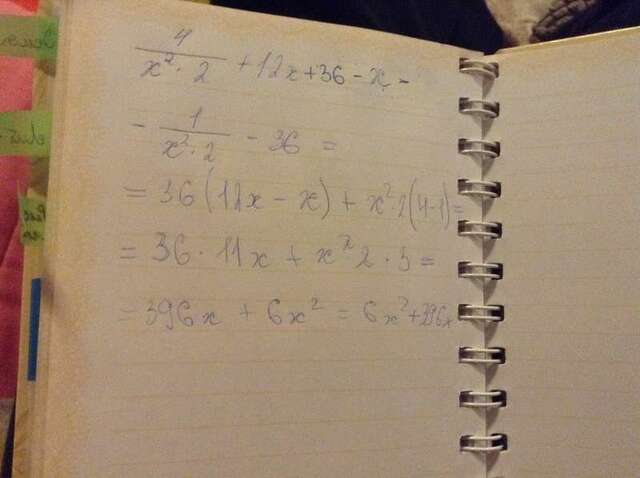 4/(x²·2) + 12x + 36 - x -
- 1/(x²·2) - 36 =
= 36(12x - x) + x²·2(4-1) =
= 36 · 11x + x²2 · 3 =
= 396x + 6x² = 6x² + 396x